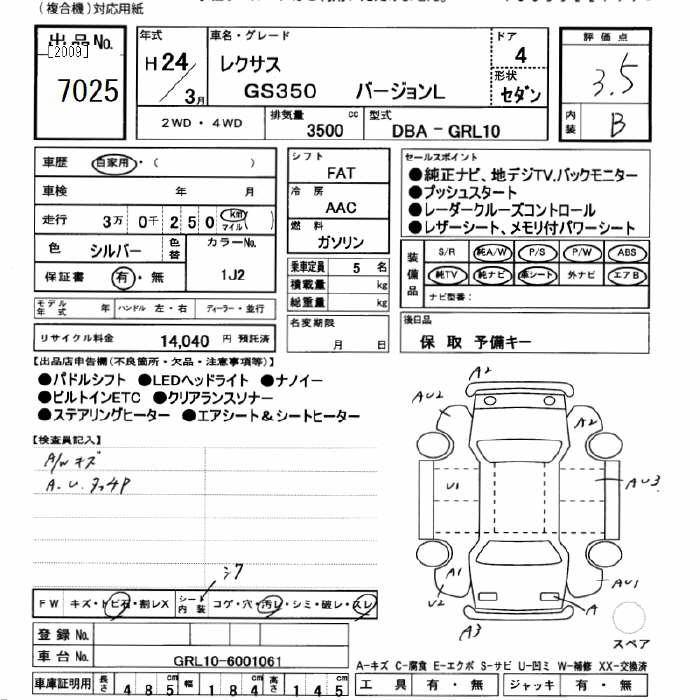 (複合機)対応用紙
出品No.
[2009]
7025
年式
H 24
3月
車名・グレード
レクサス
GS350 バージョンL
ドア
4
形状
セダン
評価点
3.5
内装
B
2WD・4WD
排気量 cc
3500
型式
DBA-GRL10
車歴 自家用・( )
車検 年 月
走行 3万 0千 2 5 0 km マイル
色 シルバー 色替 カラーNo.
1J2
保証書 有・無
シフト
FAT
冷房
AAC
燃料
ガソリン
乗車定員 5 名
積載量 kg
総重量 kg
セールスポイント
●純正ナビ、地デジTV、バックモニター
●プッシュスタート
●レーダークルーズコントロール
●レザーシート、メモリ付パワーシート
装備品
S/R 純A/W P/S P/W ABS
純TV 純ナビ 革シート 外ナビ エアB
ナビ型番:
モデル年式 年 ハンドル 左・右 ディーラー・並行
リサイクル料金 14,040 円 預託済
名変期限
月 日
後日品
保 取 予備キー
【出品店申告欄(不良箇所・欠品・注意事項等)】
●パドルシフト ●LEDヘッドライト ●ナノイー
●ビルトインETC ●クリアランスソナー
●ステアリングヒーター ●エアシート&シートヒーター
【検査員記入】
A/Wキズ
A.U.
A2
AU2
A2
U1
AU3
A1
U2
AU1
A
A3
スペア
FW キズ・トビ石・割レX シート内装 コゲ・穴・汚レ・シミ・破レ・スレ
登録No.
車台No. GRL10-6001061
車庫証明用 長さ 485 cm 幅 184 cm 高さ 145 cm
A-キズ C-腐食 E-エクボ S-サビ U-凹ミ W-補修 XX-交換済
工具 有・無 ジャッキ 有・無